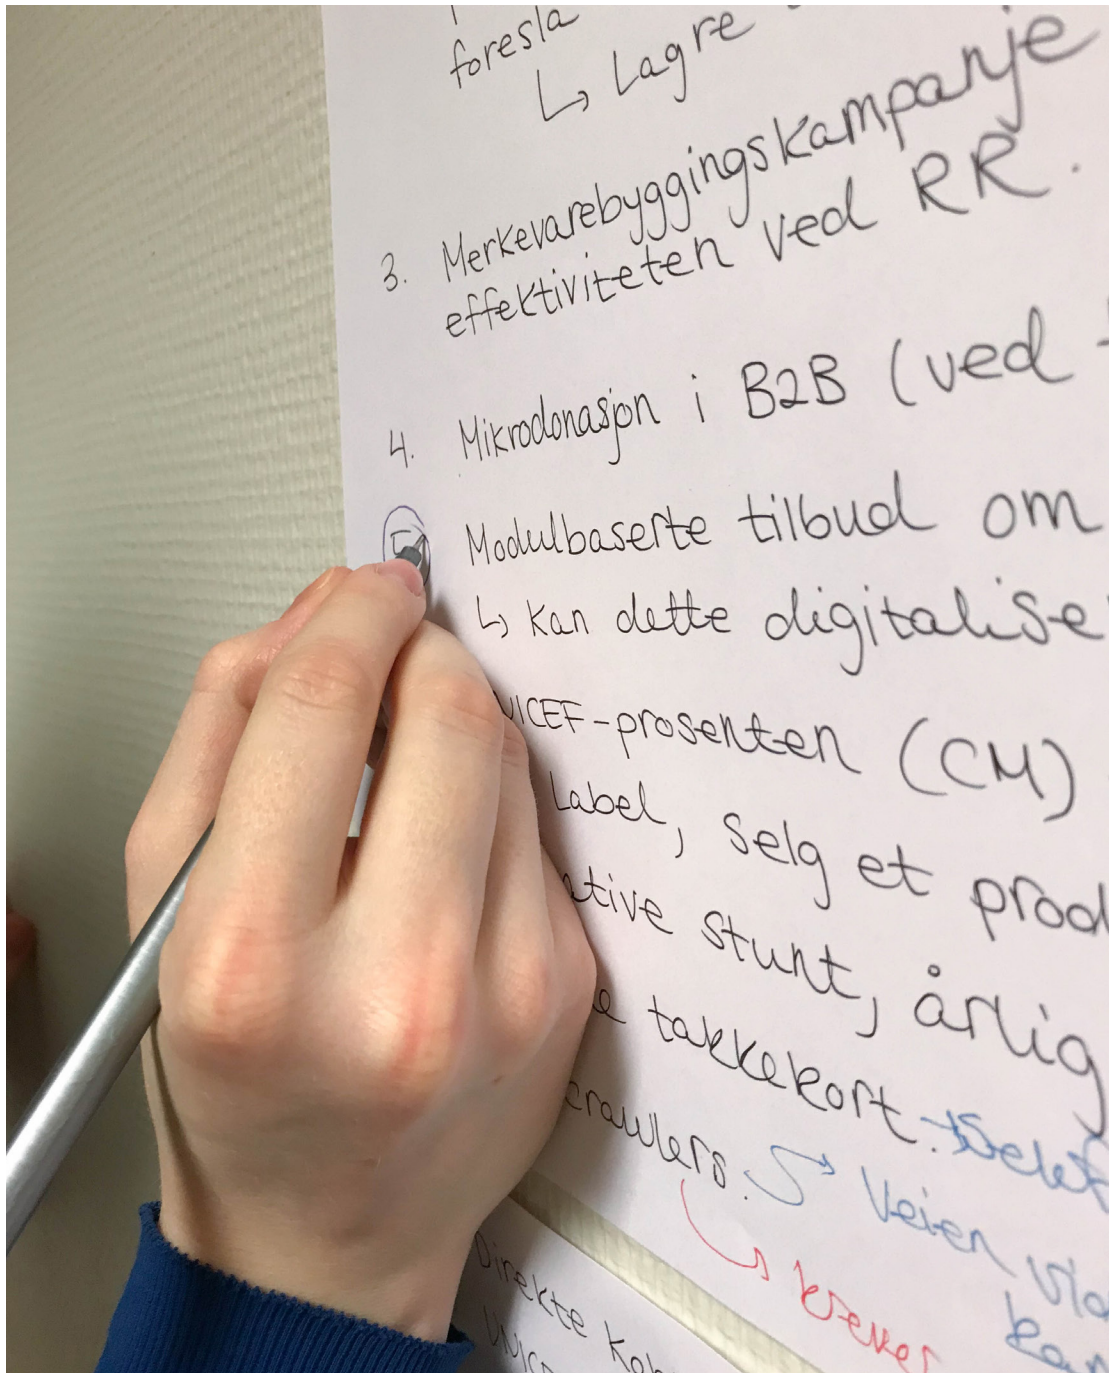 foreslå
↳ Lagre
3. Merkevarebyggingskampanje
effektiviteten ved RR.
4. Mikrodonasjon i B2B (ved
Modulbaserte tilbud om
↳ kan dette digitalise
NICEF-prosenten (CM)
Label, selg et prod
ative stunt, årlig
takkekort.
crawlers. → Veien via
→ krever kan
Direkte